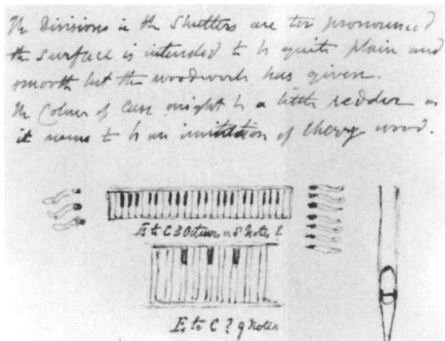 The Divisions in the Shutters are too pronounced
the surface is intended to be quite plain and
smooth but the woodwork has given.
The Colour of Case might be a little redder as
it seems to be an imitation of Cherry wood.
E to C 3 Octaves & 8 Notes
E to C ? 9 Notes